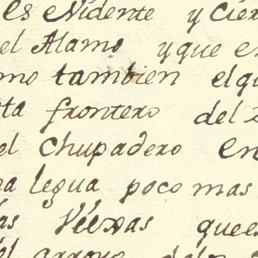 es evidente y cier
el Alamo y que en
mo tambien el qu
ta frontero del
el Chupadero en
a legua poco mas
as Viexas quees
el arroyo de los